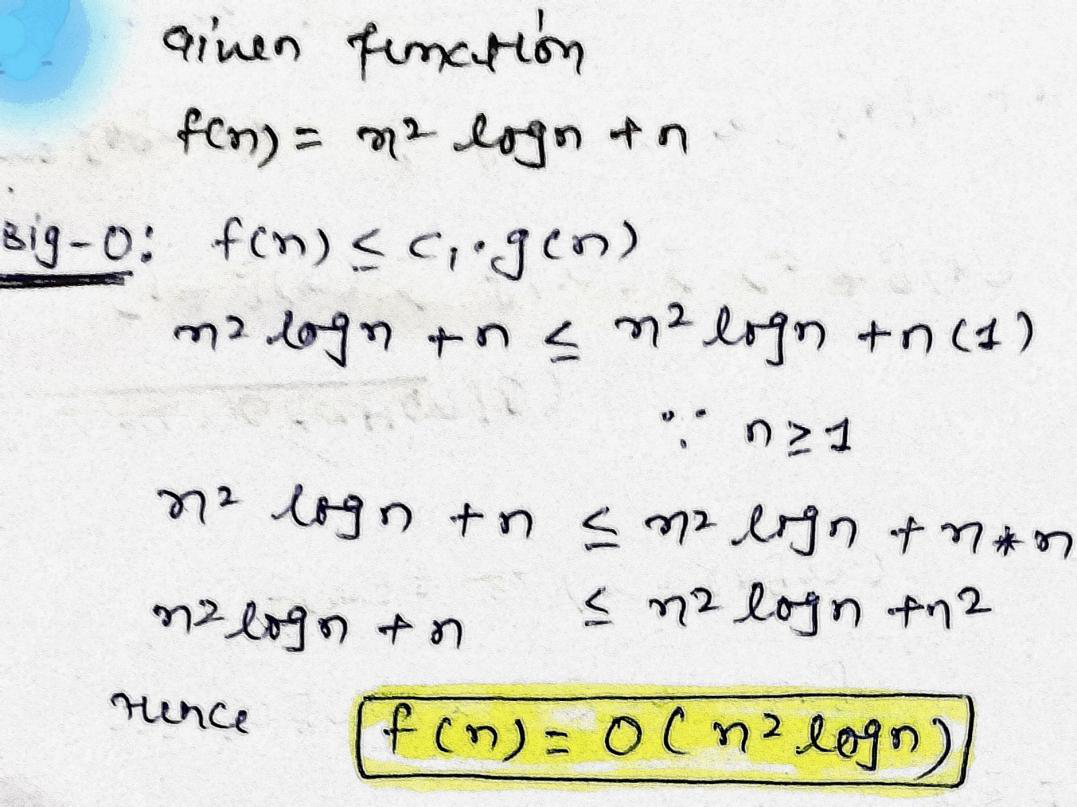 Given function
f(n) = n² logn + n
Big-O: f(n) ≤ c₁·g(n)
n² logn + n ≤ n² logn + n(1)
∵ n ≥ 1
n² logn + n ≤ n² logn + n*n
n² logn + n ≤ n² logn + n²
Hence f(n) = O(n² logn)